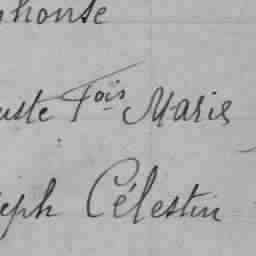 phonse
uste Fois Marie
seph Célestin